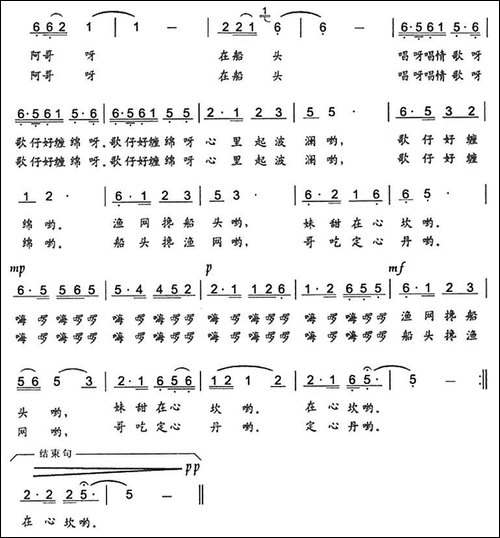 6 6 2 1 | 1 — | 2 2 1 6 1 6 | 6 — | 6·5 6 1 5·6 |
阿哥 呀 在船 头 唱呀唱情歌呀
阿哥 呀 在船 头 唱呀唱情歌呀
6·5 6 1 5·6 | 6·5 6 1 5 5 | 2·1 2 3 | 5 5· | 6·5 3 2 |
歌仔好缠绵呀.歌仔好缠绵呀 心里起波 澜哟, 歌仔好缠
歌仔好缠绵呀.歌仔好缠绵呀 心里起波 澜哟, 歌仔好缠
1 2· | 6·1 2 3 | 5 3· | 6·2 1 6 | 6 5· |
绵哟. 渔网搀船 头哟, 妹甜在心 坎哟.
绵哟. 船头搀渔 网哟, 哥吃定心 丹哟.
mp p mf
6·5 5 6 5 | 5·4 4 5 2 | 2·1 1 2 6 | 1·2 6 5 5 | 6·1 2 3 |
嗨啰嗨啰啰 嗨啰嗨啰啰 嗨啰嗨啰啰 嗨啰嗨啰啰 渔网搀船
嗨啰嗨啰啰 嗨啰嗨啰啰 嗨啰嗨啰啰 嗨啰嗨啰啰 船头搀渔
5 6 5 3 | 2·1 6 5 6 | 1 2 1 2 | 2·1 6 5· | 5 — :||
头 哟, 妹甜在心 坎 哟. 在心坎哟.
网 哟, 哥吃定心 丹 哟. 定心丹哟.
结束句
pp
2·2 2 5· | 5 — ||
在心坎哟.